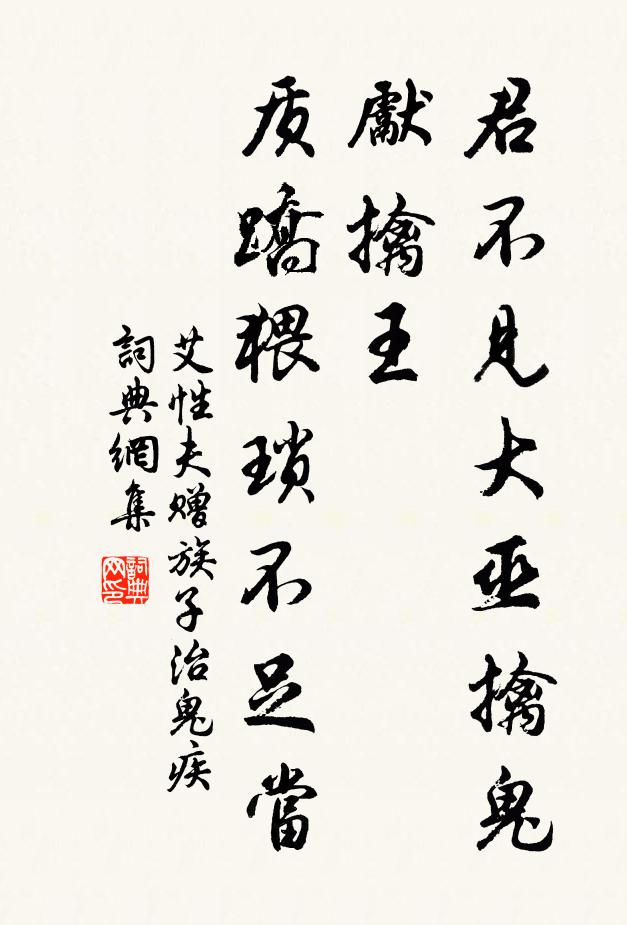 君不見大巫擒鬼
獻擒王
质蹻猥琐不足當
艾性夫赠族子治鬼疾
詞典網集
詞典网印